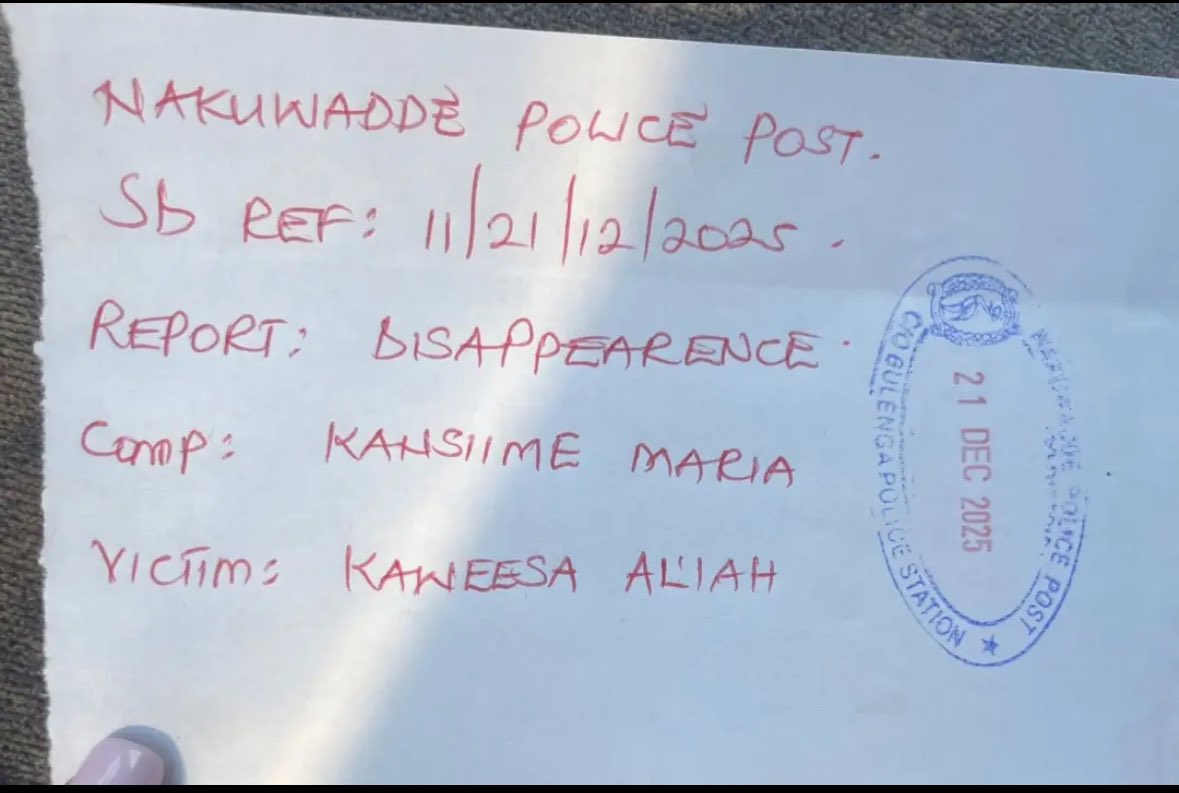 NAKUWADDE POLICE POST.
Sb REF: 11/21/12/2025.
REPORT: DISAPPEARENCE.
Comp: KANSIIME MARIA
VICTIM: KAWEESA ALIAH
POLICE POST
21 DEC 2025
C/O BULENGA POLICE STATION